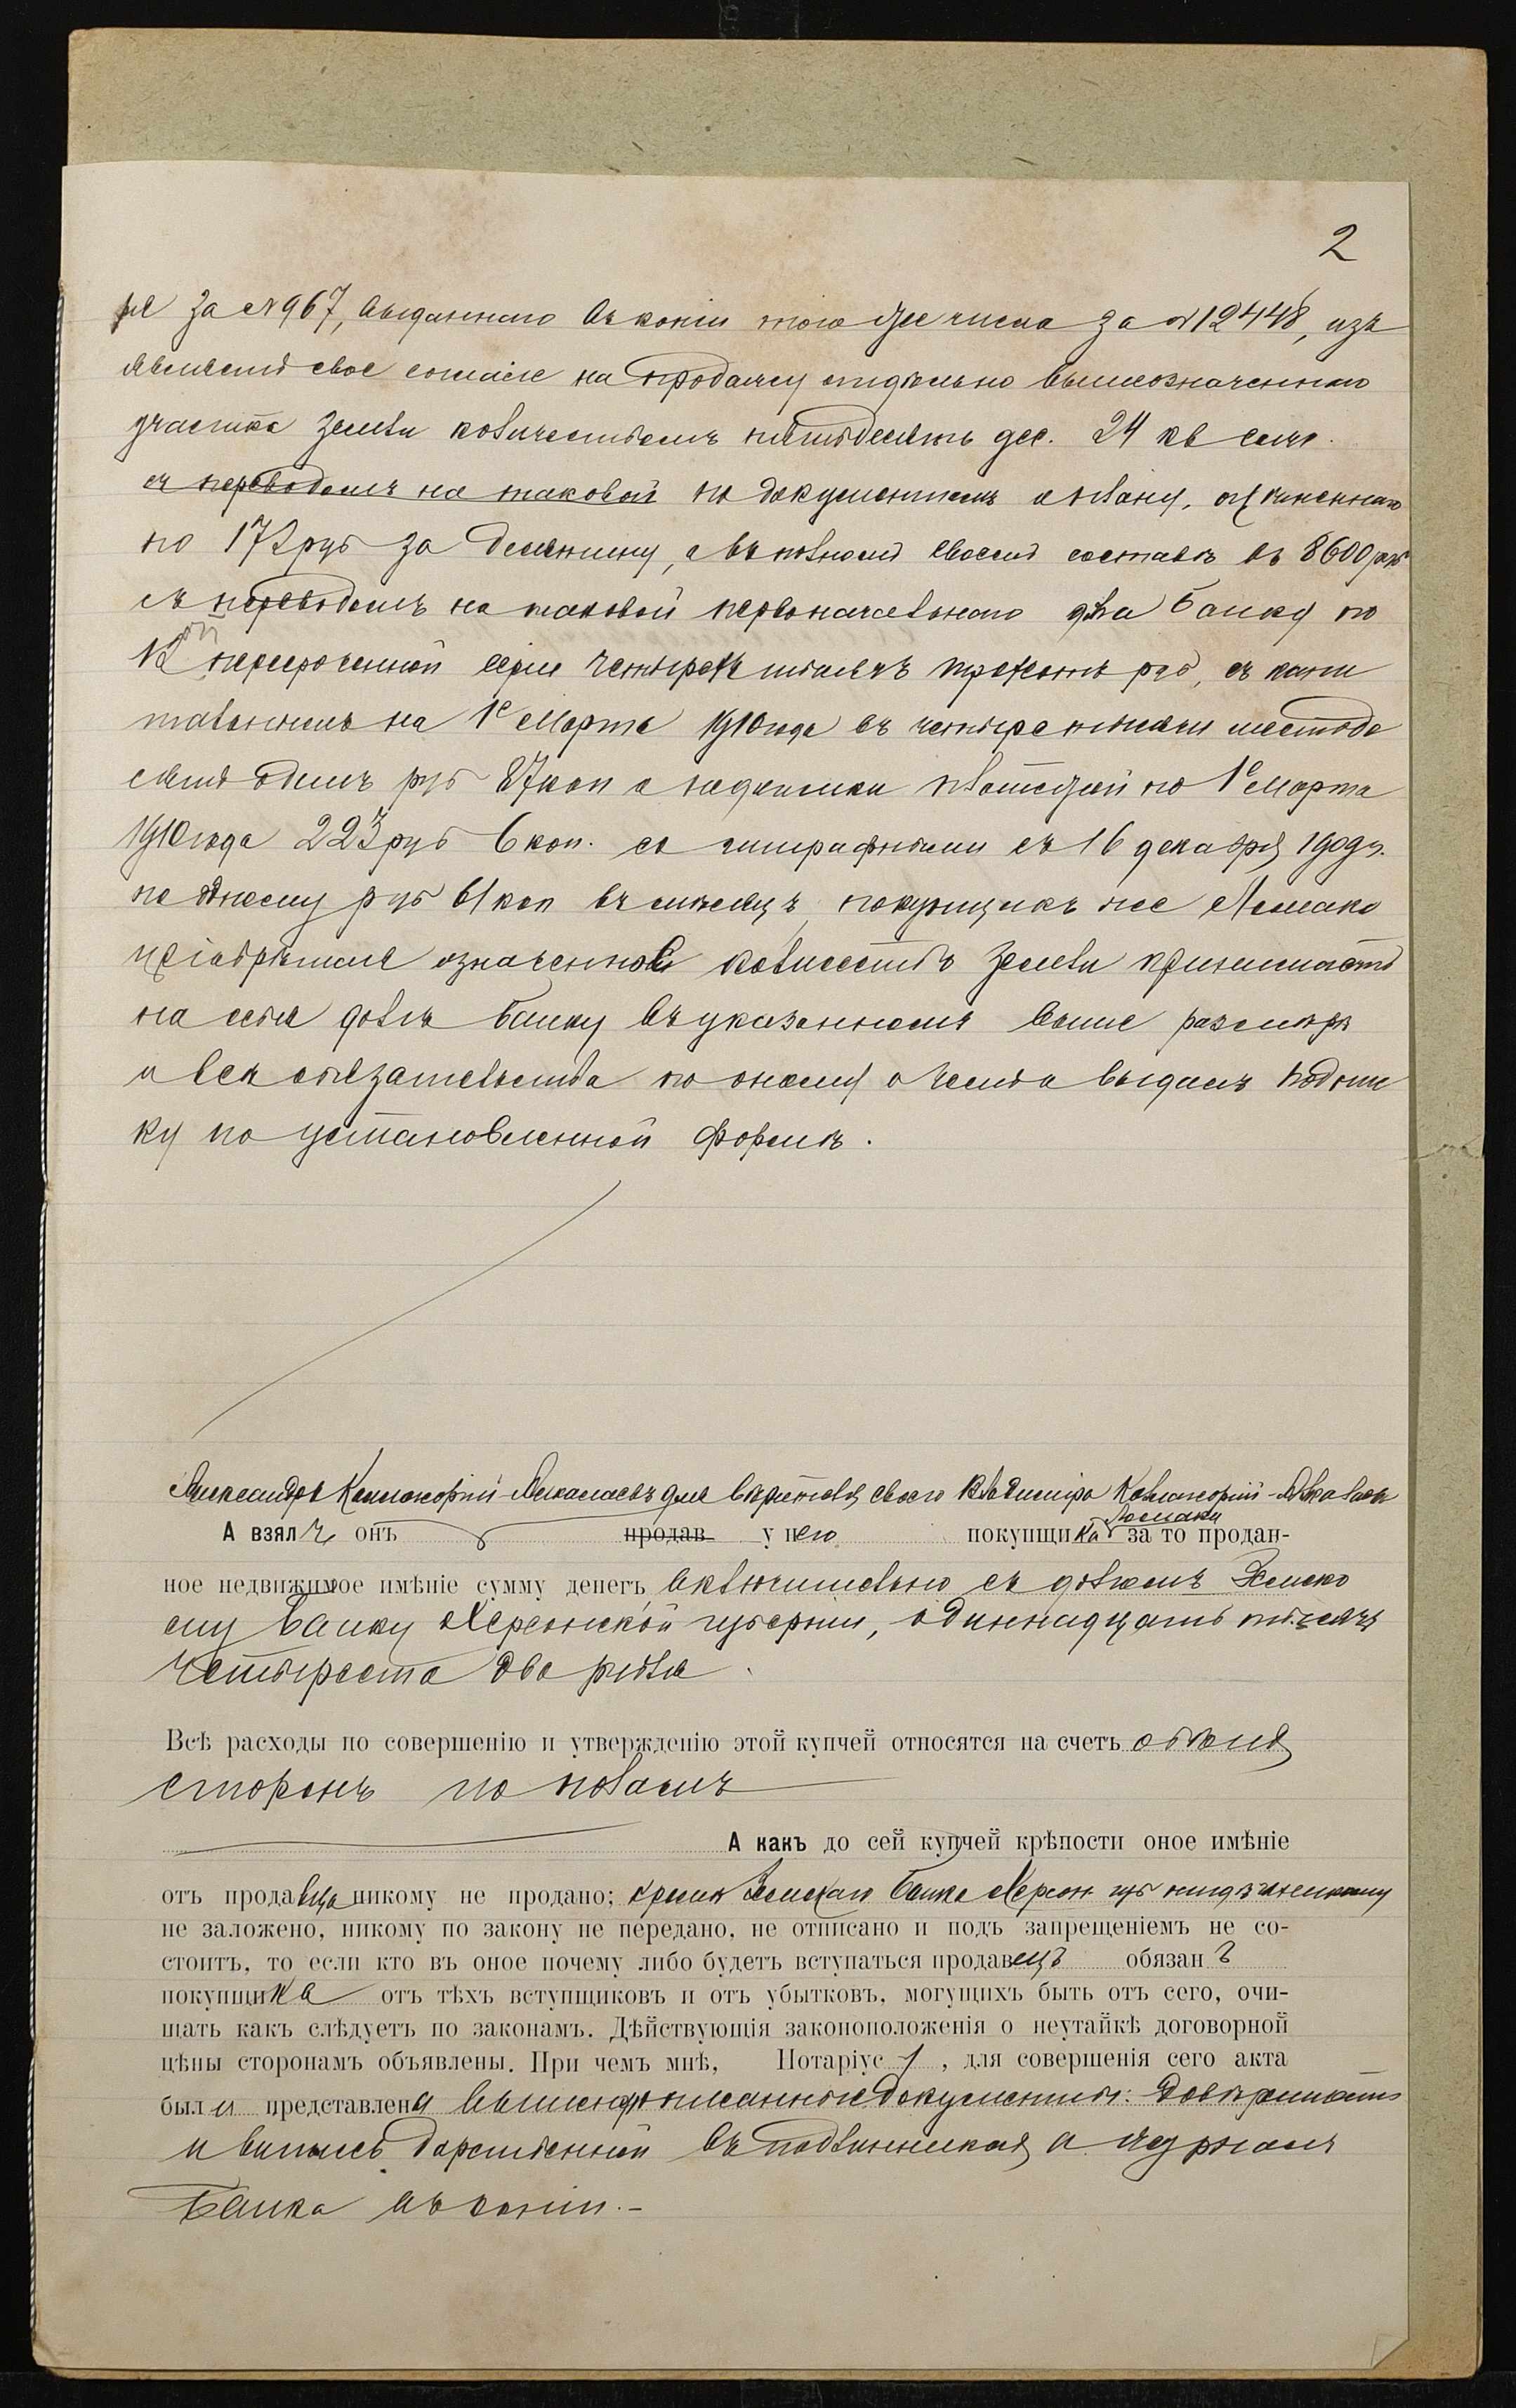 2
ря за № 967, выданнаго въ копіи того же числа за № 12448, изъ
явилъ свое согласіе на продажу отдѣльно вышеозначеннаго
участка земли количествомъ пятьдесятъ дес. 24 кв саж.
съ переводомъ на таковой по документамъ и плану, оцѣненнаго
по 172 руб за десятину, а въ полномъ своемъ составѣ въ 8600 руб
съ переводомъ на таковой первоначальнаго д-га банку по
12ой пересроченной серіи четырехъ тысячъ трехсотъ руб, съ капи
таломъ на 1е Марта 1910 года въ четыре тысячи шестьде
сятъ одинъ руб 87 коп и недоимки платежей по 1е Марта
1910 года 223 руб 6 коп. со штрафными съ 16 декабря 1909 г.
по одному руб 61 коп въ мѣсяцъ, покупщикъ же Ломако
пріобрѣтая означенное количество земли принимаетъ
на себя долгъ банку въ указанномъ выше размѣрѣ
и всѣ обязательства по оному о чемъ и выдалъ подпис
ку по установленной формѣ.
Александръ для вѣрителя своего Владиміра
Ломаки
А взялъ онъ продав у него покупщика за то продан-
ное недвижимое имѣніе сумму денегъ, включительно съ долгомъ Земско
му Банку Херсонской губерніи, одиннадцать тысячъ
четыреста два рубля.
Всѣ расходы по совершенію и утвержденію этой купчей относятся на счетъ обѣихъ
сторонъ по поламъ
А какъ до сей купчей крѣпости оное имѣніе
отъ продавца никому не продано; кромѣ Земскаго Банка Херсон. губ никому
не заложено, никому по закону не передано, не отписано и подъ запрещеніемъ не со-
стоитъ, то если кто въ оное почему либо будетъ вступаться продавецъ обязанъ
покупщика отъ тѣхъ вступщиковъ и отъ убытковъ, могущихъ быть отъ сего, очи-
щать какъ слѣдуетъ по законамъ. Дѣйствующія законоположенія о неутайкѣ договорной
цѣны сторонамъ объявлены. При чемъ мнѣ, Нотаріусу, для совершенія сего акта
были представлены документы: довѣренность
и выпись дарственной въ подлинникахъ и журналъ
Банка въ копіи.-